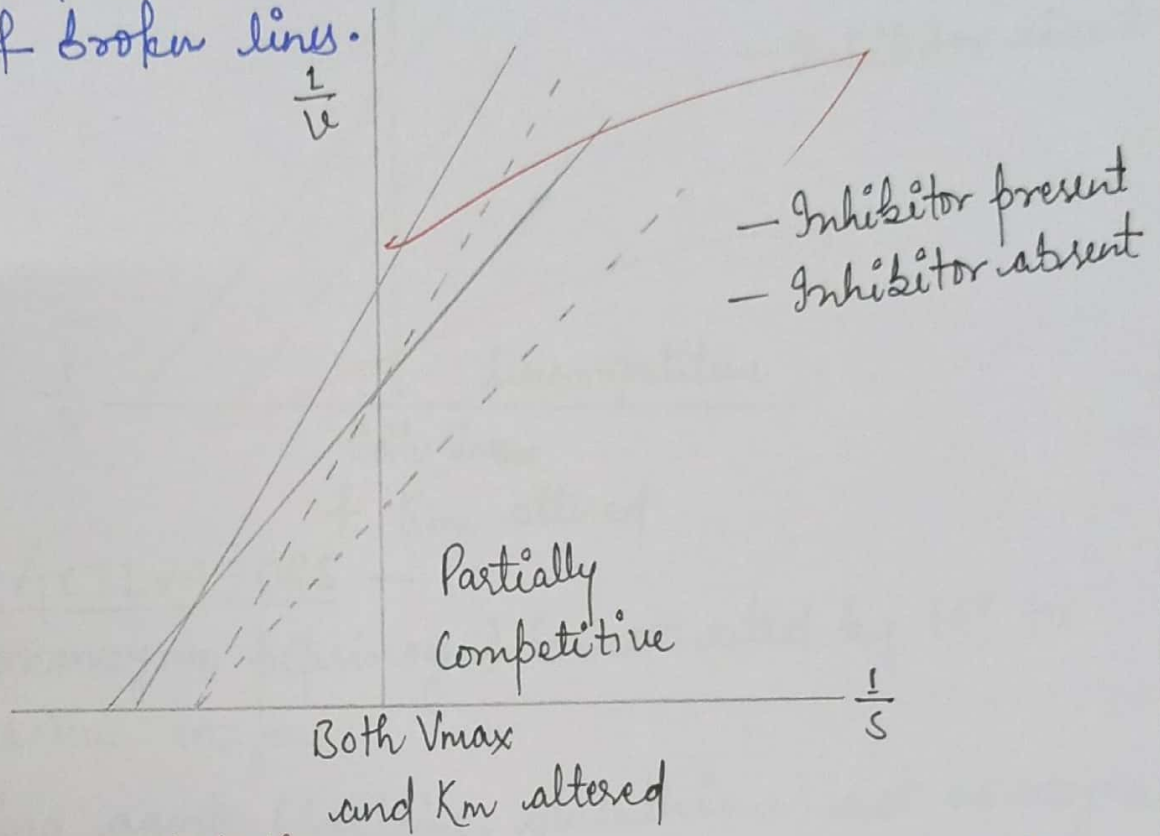 f broken lines.
1
V
— Inhibitor present
— Inhibitor absent
Partially
Competitive
1
S
Both Vmax
and Km altered